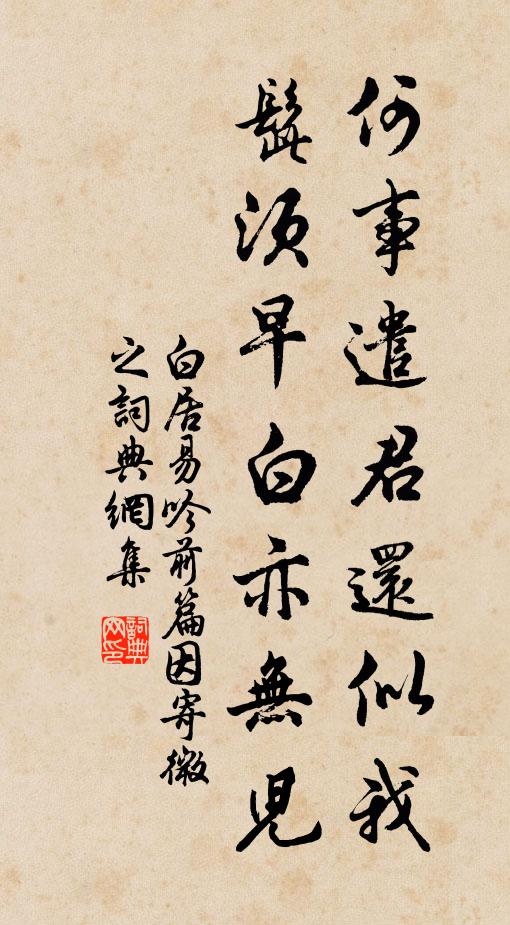 何事遣君還似我
髭須早白亦無兒
白居易吟前篇因寄微
之詞典網集
詞典
网印